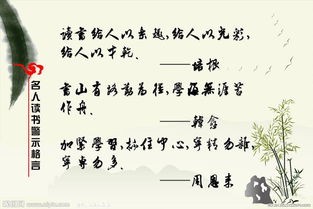 读书给人以乐趣,给人以光彩,
给人以才干。
——培根
书山有路勤为径,學海無涯苦
作舟。
——韩愈
加紧学习,抓住中心,宁精勿杂,
宁专勿多。
——周恩来
名人读书警示格言